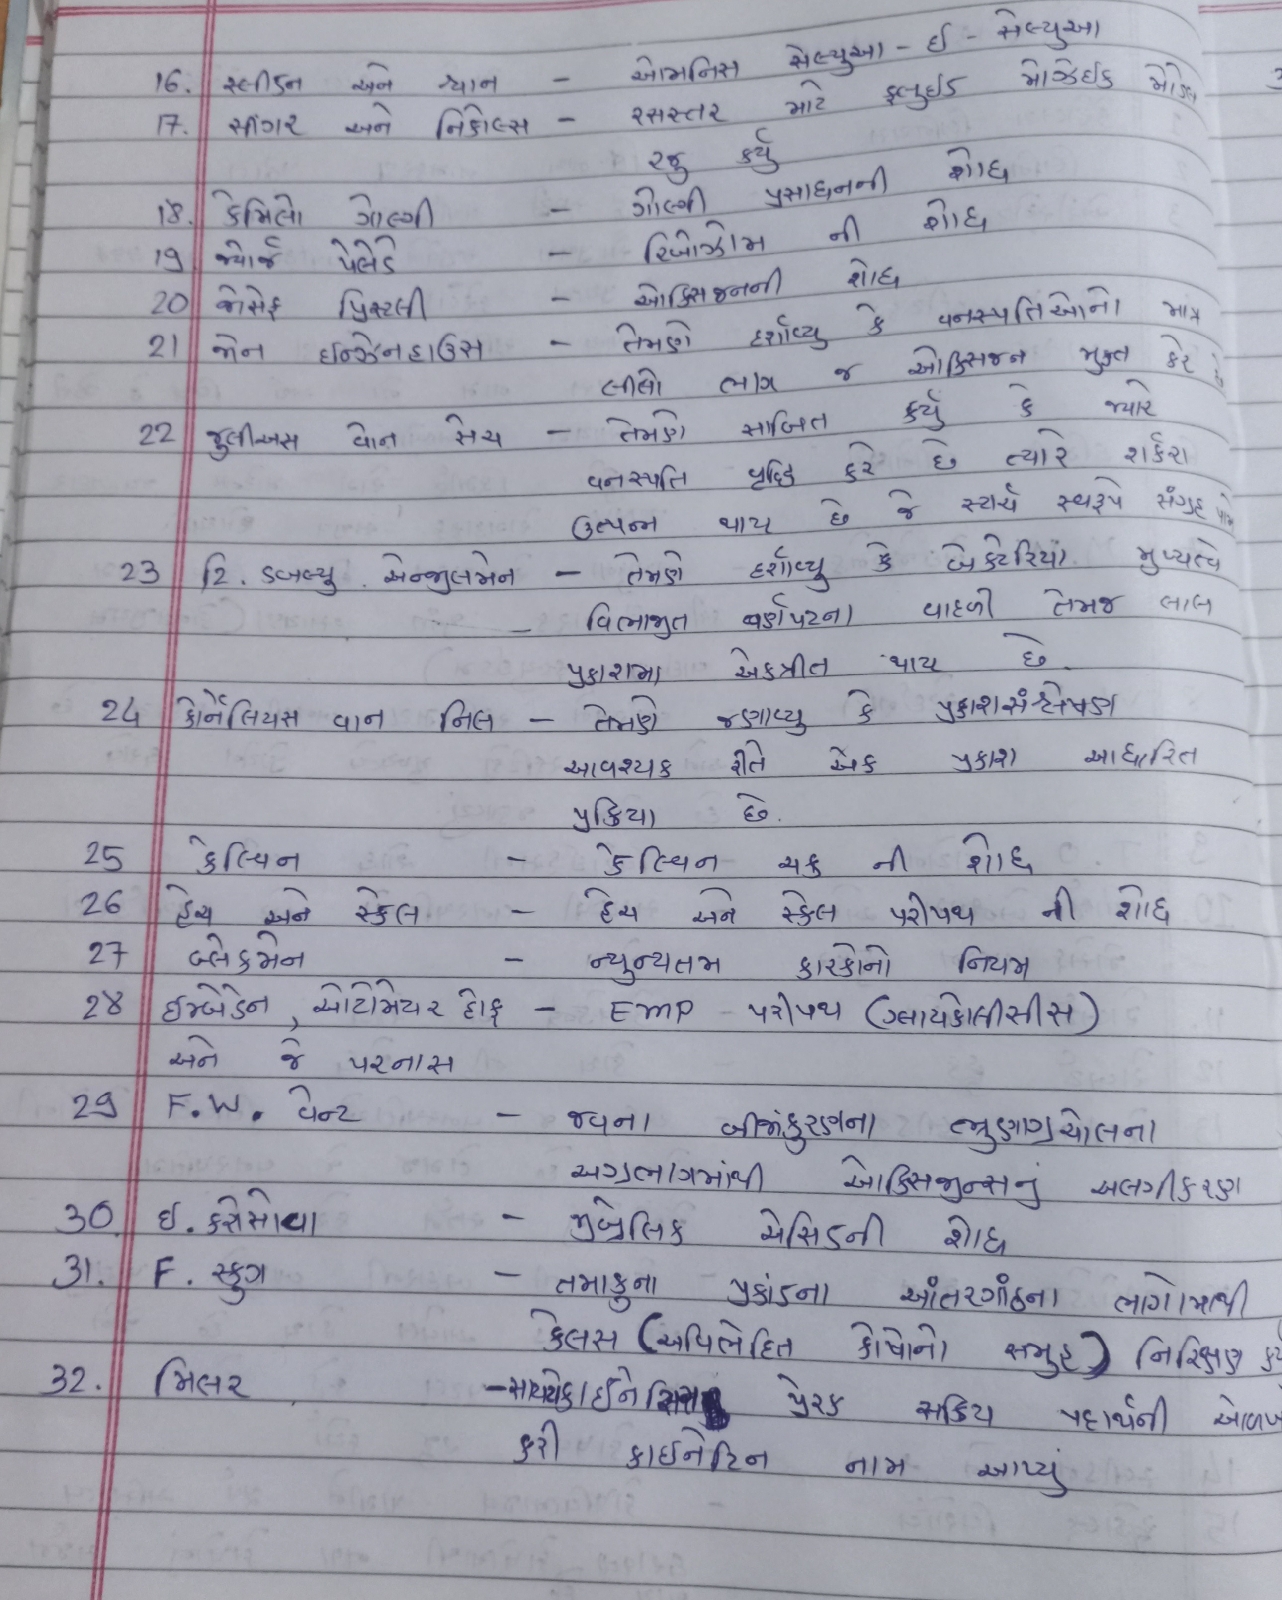 16. સ્લીડન અને શ્વાન - ઓમનિસ સેલ્યુઆ - ઈ - સેલ્યુઆ
17. સીંગર અને નિકોલ્સ - રસસ્તર માટે ફ્લુઇડ મોઝેઇક મોડેલ
રજુ કર્યુ
18. કેમિલો ગોલ્ગી - ગોલ્ગી પ્રસાધનની શોધ
19 જ્યોર્જ પેલેડે - રિબોઝોમ ની શોધ
20 જોસેફ પ્રિસ્ટલી - ઓક્સિજનની શોધ
21 જોન ઇન્ઝેનહાઉસ - તેમણે દર્શાવ્યુ કે વનસ્પતિઓનો માત્ર
લીલો ભાગ જ ઓક્સિજન મુક્ત કરે છે
22 જુલીઅસ વોન સેચ - તેમણે સાબિત કર્યુ કે જ્યારે
વનસ્પતિ વૃદ્ધિ કરે છે ત્યારે શર્કરા
ઉત્પન્ન થાય છે જે સ્ટાર્ચ સ્વરૂપે સંગ્રહ
23 ટિ. ડબલ્યુ. એન્જીલમેન - તેમણે દર્શાવ્યુ કે બેક્ટેરિયા મુખ્યત્વે
- વિભાજીત વર્ણપટના વાદળી તેમજ લાલ
પ્રકાશમા એકત્રીત થાય છે.
24 કોર્નેલિયસ વાન નિલ - તેમણે જણાવ્યુ કે પ્રકાશસંશ્લેષણ
આવશ્યક રીતે એક પ્રકાશ આધારિત
પ્રક્રિયા છે.
25 કેલ્વિન - કેલ્વિન ચક્ર ની શોધ
26 હેચ અને સ્કેલ - હેચ અને સ્કેલ પરીપથ ની શોધ
27 બ્લેકમેન - ન્યુન્યતમ કારકોનો નિયમ
28 ઇમ્બેડેન, ઓટોમેયર હોફ - EMP - પરીપથ (ગ્લાયકોલીસીસ)
અને જે પરનાસ
29 F.W. વેન્ટ - જવના બીજાંકુરણના ભ્રુણાગ્રચોલના
અગ્રભાગમાંથી ઓક્સિજીન્સનું અલગીકરણ
30 ઇ. કરોસોવા - જીબ્રેલિક એસિડની શોધ
31. F. સ્કુગ - તમાકુના પ્રકાંડના આંતરગાંઠના ભાગોમાથી
કેલસ (અવિભેદિત કોષોનો સમુહ) નિરિક્ષણ
32. મિલર - સાયટોકાઇનેસિસ પ્રેરક સક્રિય પદાર્થની
કરી કાઇનેટિન નામ આપ્યું